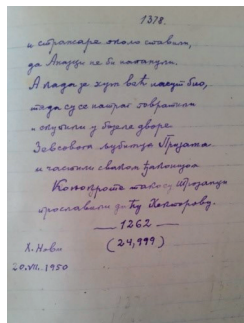 1378.
и стражаре около ставили,
да Ахајци не би напанули.
А када је хум већ насут био,
тада су се натраг повратили
и скупили у беле дворе
Зевсовога љубимца Пријама
и частили сваком ђаконијом
Конокроте тако су Тројанци
прославили даћу Хекторову.
1262
(24,999)
Х. Нови
20.VII.1950